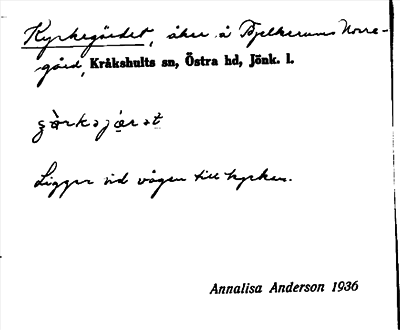 Kyrkogärdet, åker å Bjelkerums Norre-
gård, Kråkshults sn, Östra hd, Jönk. l.
Ligger vid vägen till kyrkan.
Annalisa Anderson 1936